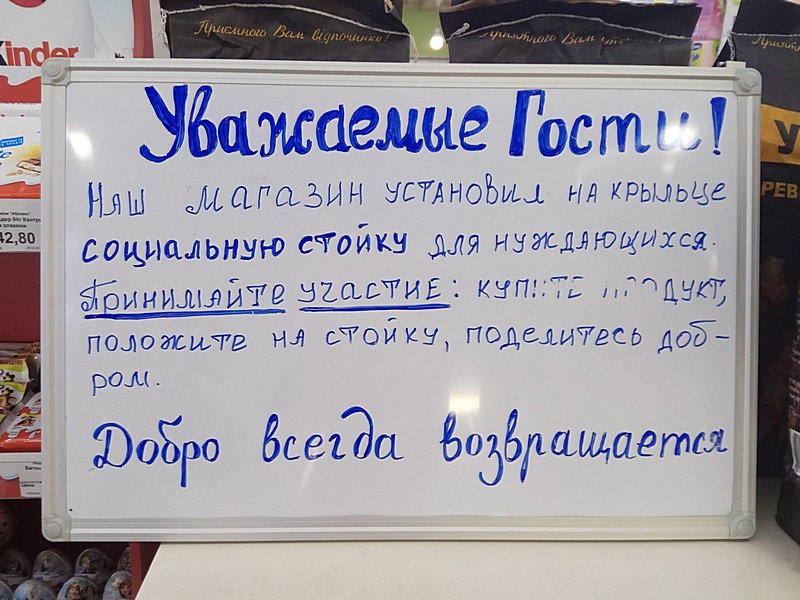 Приємного Вам відпочинку!
Приятного Вам
Kinder
Уважаемые Гости!
Наш магазин установил на крыльце
социальную стойку для нуждающихся.
Принимайте участие: купите продукт,
положите на стойку, поделитесь доб-
ром.
Добро всегда возвращается
42,80